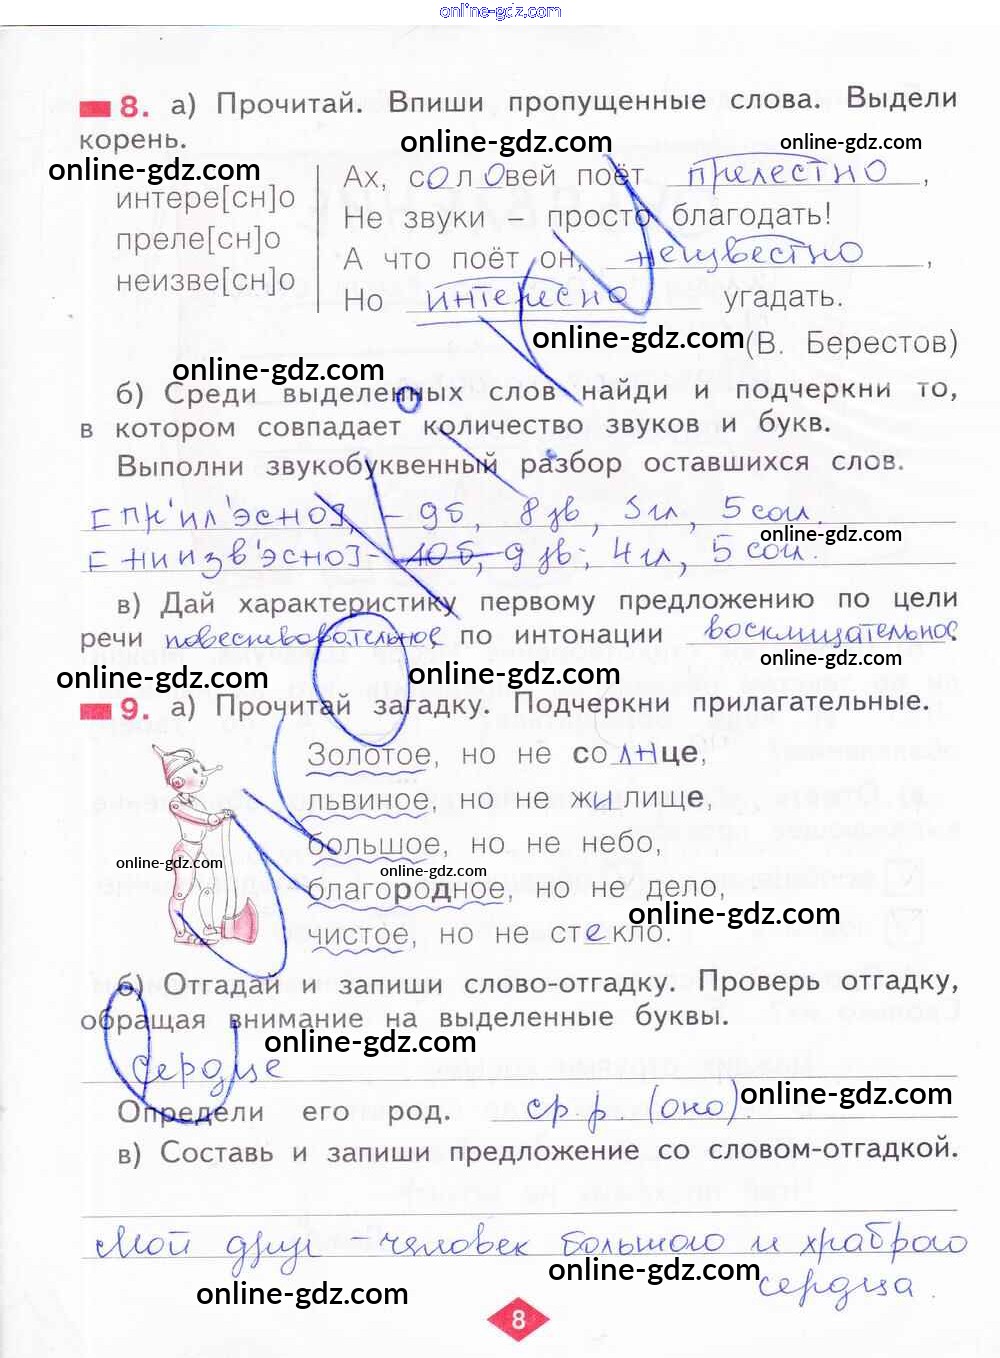 online-gdz.com
8. а) Прочитай. Впиши пропущенные слова. Выдели
корень.
online-gdz.com
online-gdz.com
online-gdz.com
интере[сн]о
преле[сн]о
неизве[сн]о
Ах, соловей поёт прелестно,
Не звуки – просто благодать!
А что поёт он, неизвестно,
Но интересно угадать.
online-gdz.com
(В. Берестов)
online-gdz.com
б) Среди выделенных слов найди и подчеркни то,
в котором совпадает количество звуков и букв.
Выполни звукобуквенный разбор оставшихся слов.
[пр'ил'эсно], – 9б, 8 зв, 3 гл, 5 согл.
online-gdz.com
[ниизв'эсно] – 10б, 9 зв; 4 гл, 5 согл.
в) Дай характеристику первому предложению по цели
речи повествовательное, по интонации восклицательное.
online-gdz.com
online-gdz.com
online-gdz.com
9. а) Прочитай загадку. Подчеркни прилагательные.
Золотое, но не солнце,
львиное, но не жилище,
большое, но не небо,
online-gdz.com
online-gdz.com
благородное, но не дело,
online-gdz.com
чистое, но не стекло.
б) Отгадай и запиши слово-отгадку. Проверь отгадку,
обращая внимание на выделенные буквы.
online-gdz.com
сердце
online-gdz.com
Определи его род. ср. р. (оно).
в) Составь и запиши предложение со словом-отгадкой.
Мой друг – человек большого и храброго
сердца.
online-gdz.com
online-gdz.com
8